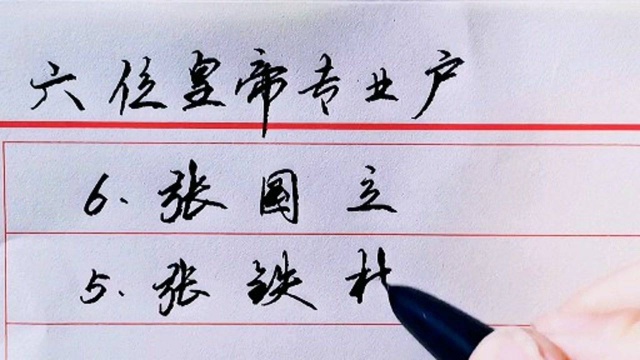 六位皇帝专业户
6.张国立
5.张铁林